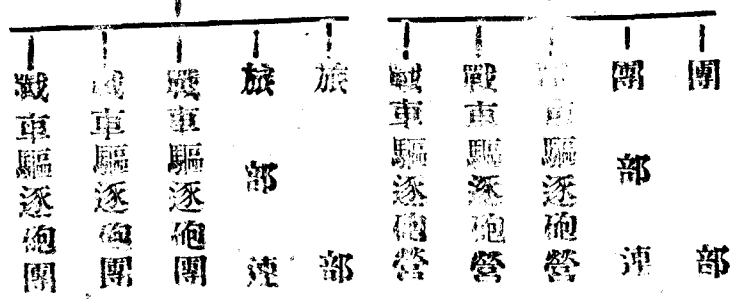 團部
團部連
戰車驅逐砲營
戰車驅逐砲營
戰車驅逐砲營
旅部
旅部連
戰車驅逐砲團
戰車驅逐砲團
戰車驅逐砲團